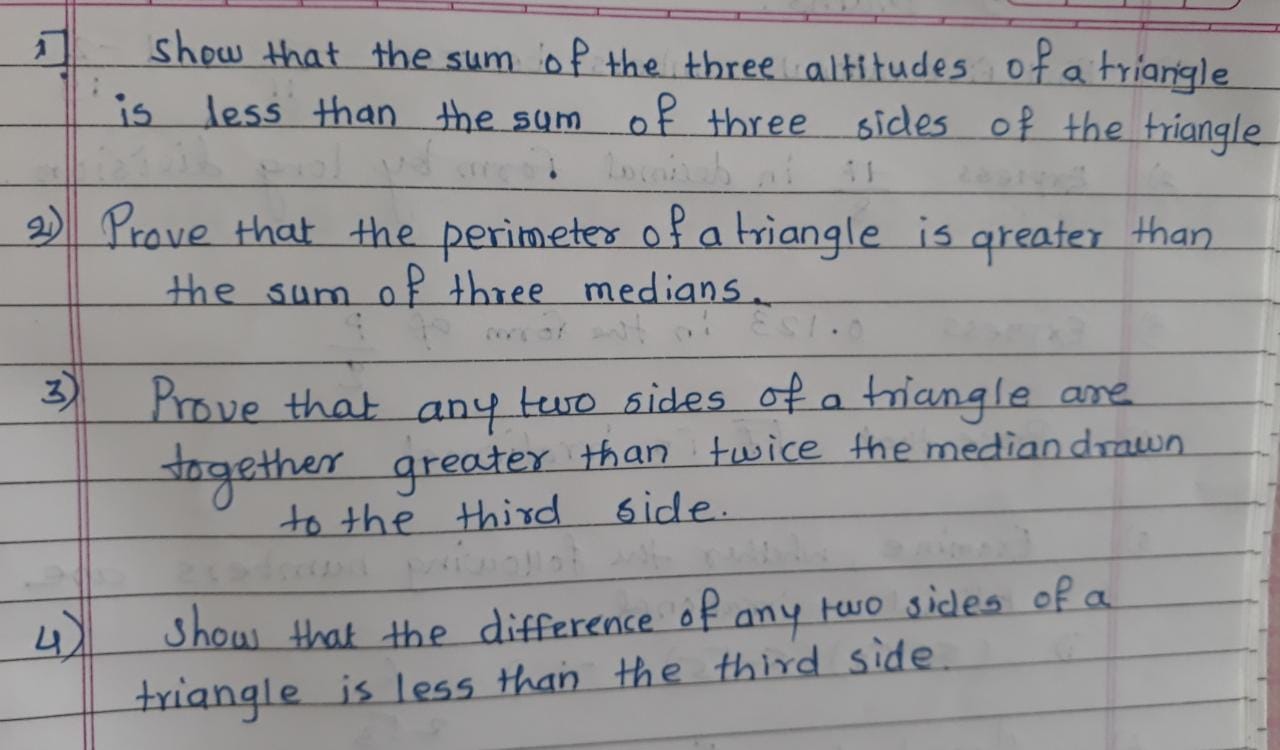 1] Show that the sum of the three altitudes of a triangle
is less than the sum of three sides of the triangle
2) Prove that the perimeter of a triangle is greater than
the sum of three medians.
3) Prove that any two sides of a triangle are
together greater than twice the median drawn
to the third side.
4) Show that the difference of any two sides of a
triangle is less than the third side.